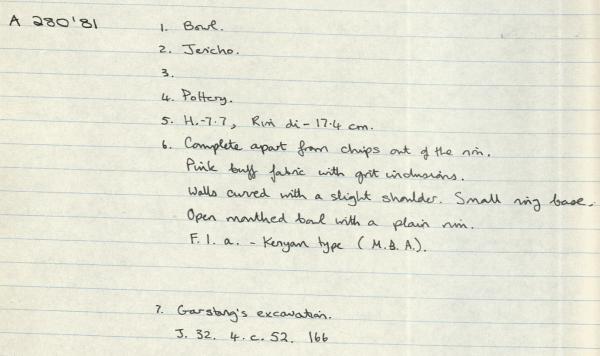 A 280'81
1. Bowl.
2. Jericho.
3.
4. Pottery.
5. H.-7.7, Rim di-17.4 cm.
6. Complete apart from chips out of the rim.
Pink buff fabric with grit inclusions.
Walls curved with a slight shoulder. Small ring base.
Open mouthed bowl with a plain rim.
F.1.a. - Kenyan type (M.B.A.).
7. Garstang's excavation.
J. 32. 4.c. 52. 166